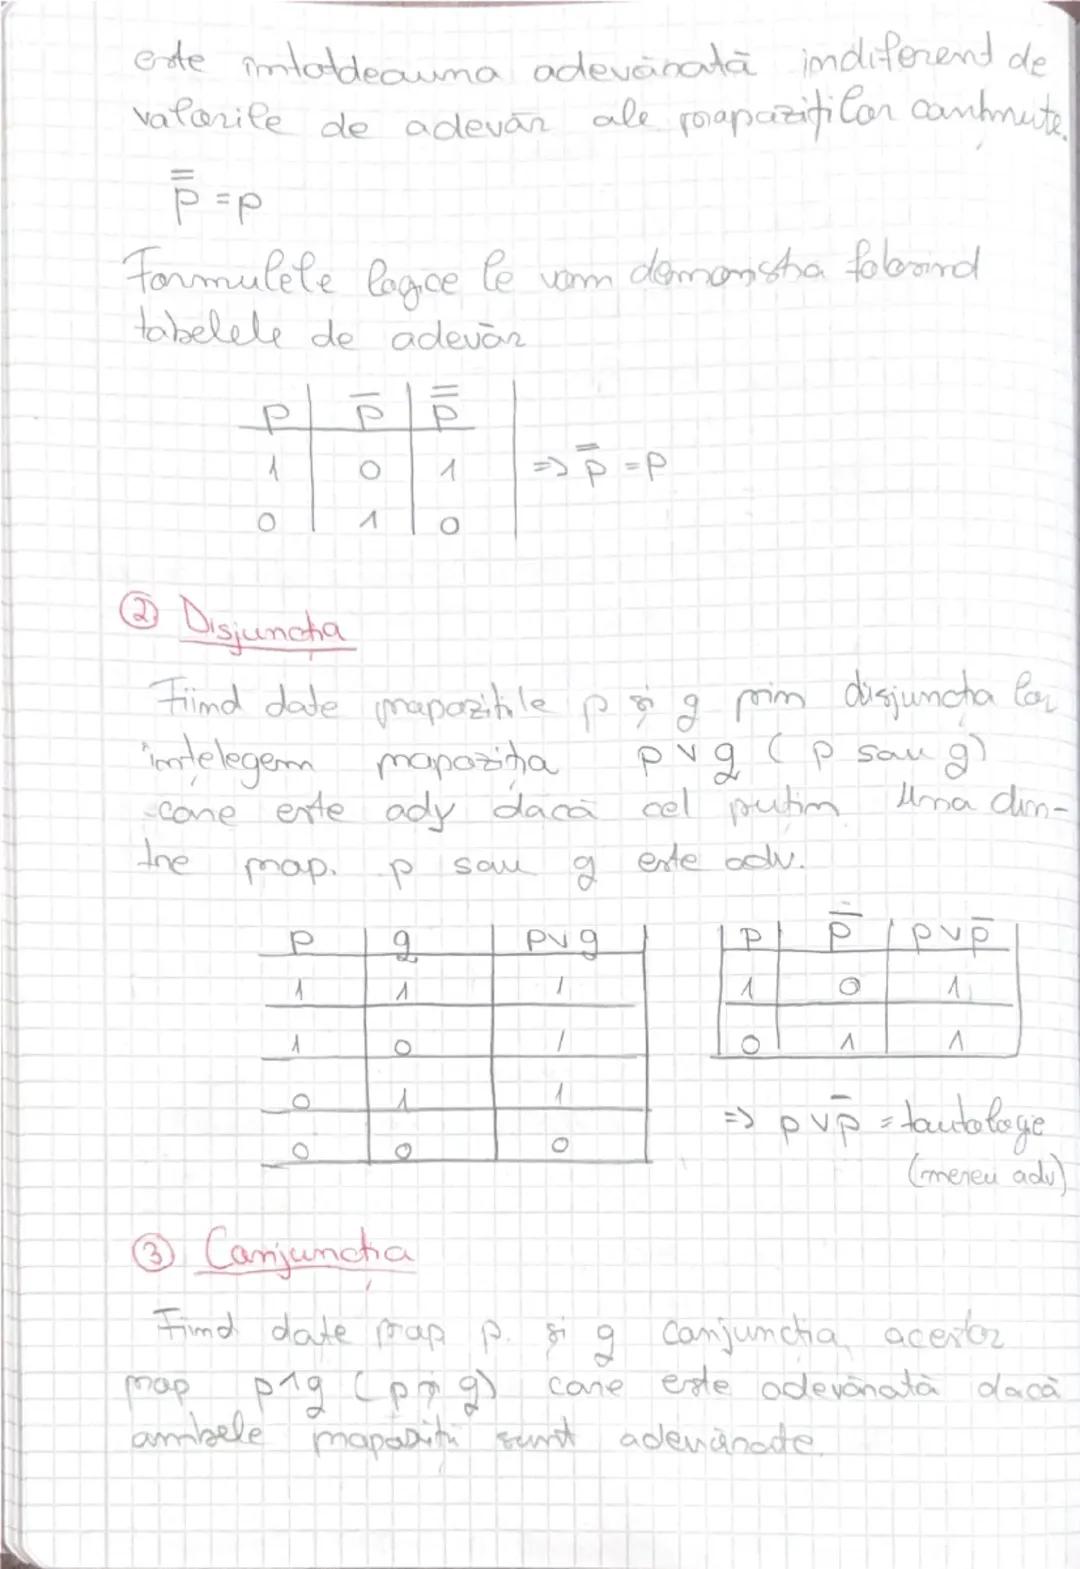 este întotdeauna adevărată indiferent de
valorile de adevăr ale propozițiilor conținute.
p̿ = p
Formulele logice le vom demonstra folosind
tabelele de adevăr
p | p̅ | p̿
1 | 0 | 1 => p̿ = p
0 | 1 | 0
② Disjuncția
Fiind date propozițiile p și q prin disjuncția lor
înțelegem propoziția p ∨ q ( p sau q )
care este adv dacă cel puțin una din-
tre prop. p sau q este adv.
p | q | p∨q
1 | 1 | 1
1 | 0 | 1
0 | 1 | 1
0 | 0 | 0
p | p̅ | p∨p̅
1 | 0 | 1
0 | 1 | 1
=> p∨p̅ = tautologie
(mereu adv)
③ Conjuncția
Fiind date prop p. și q conjuncția acestor
prop p∧q (p și q) care este adevărată dacă
ambele propoziții sunt adevărate.